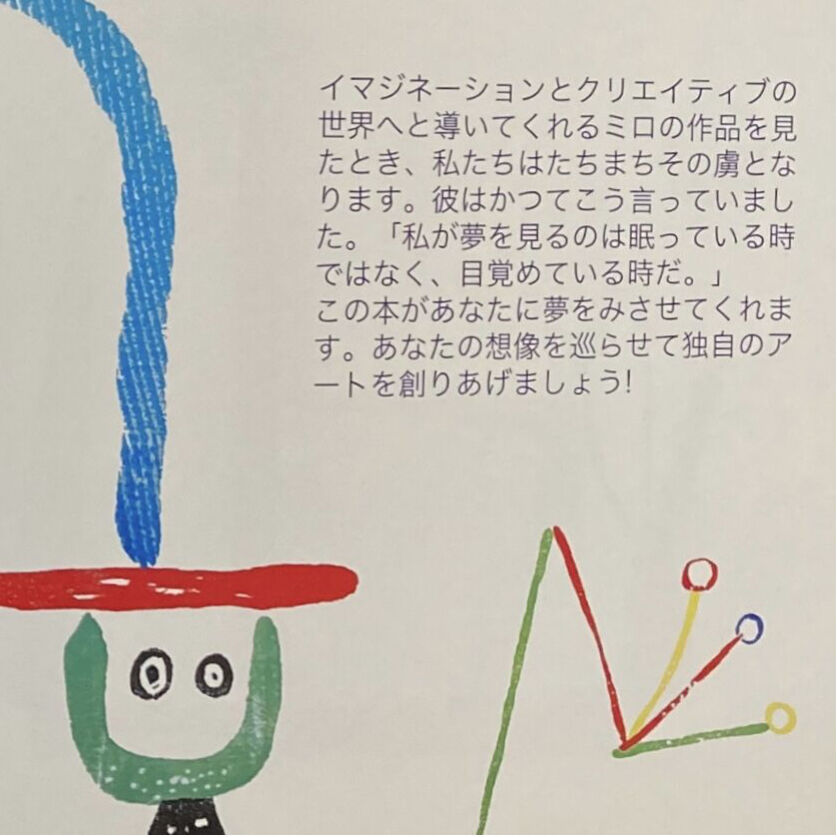 イマジネーションとクリエイティブの
世界へと導いてくれるミロの作品を見
たとき、私たちはたちまちその虜とな
ります。彼はかつてこう言っていまし
た。「私が夢を見るのは眠っている時
ではなく、目覚めている時だ。」
この本があなたに夢をみさせてくれま
す。あなたの想像を巡らせて独自のア
ートを創りあげましょう!